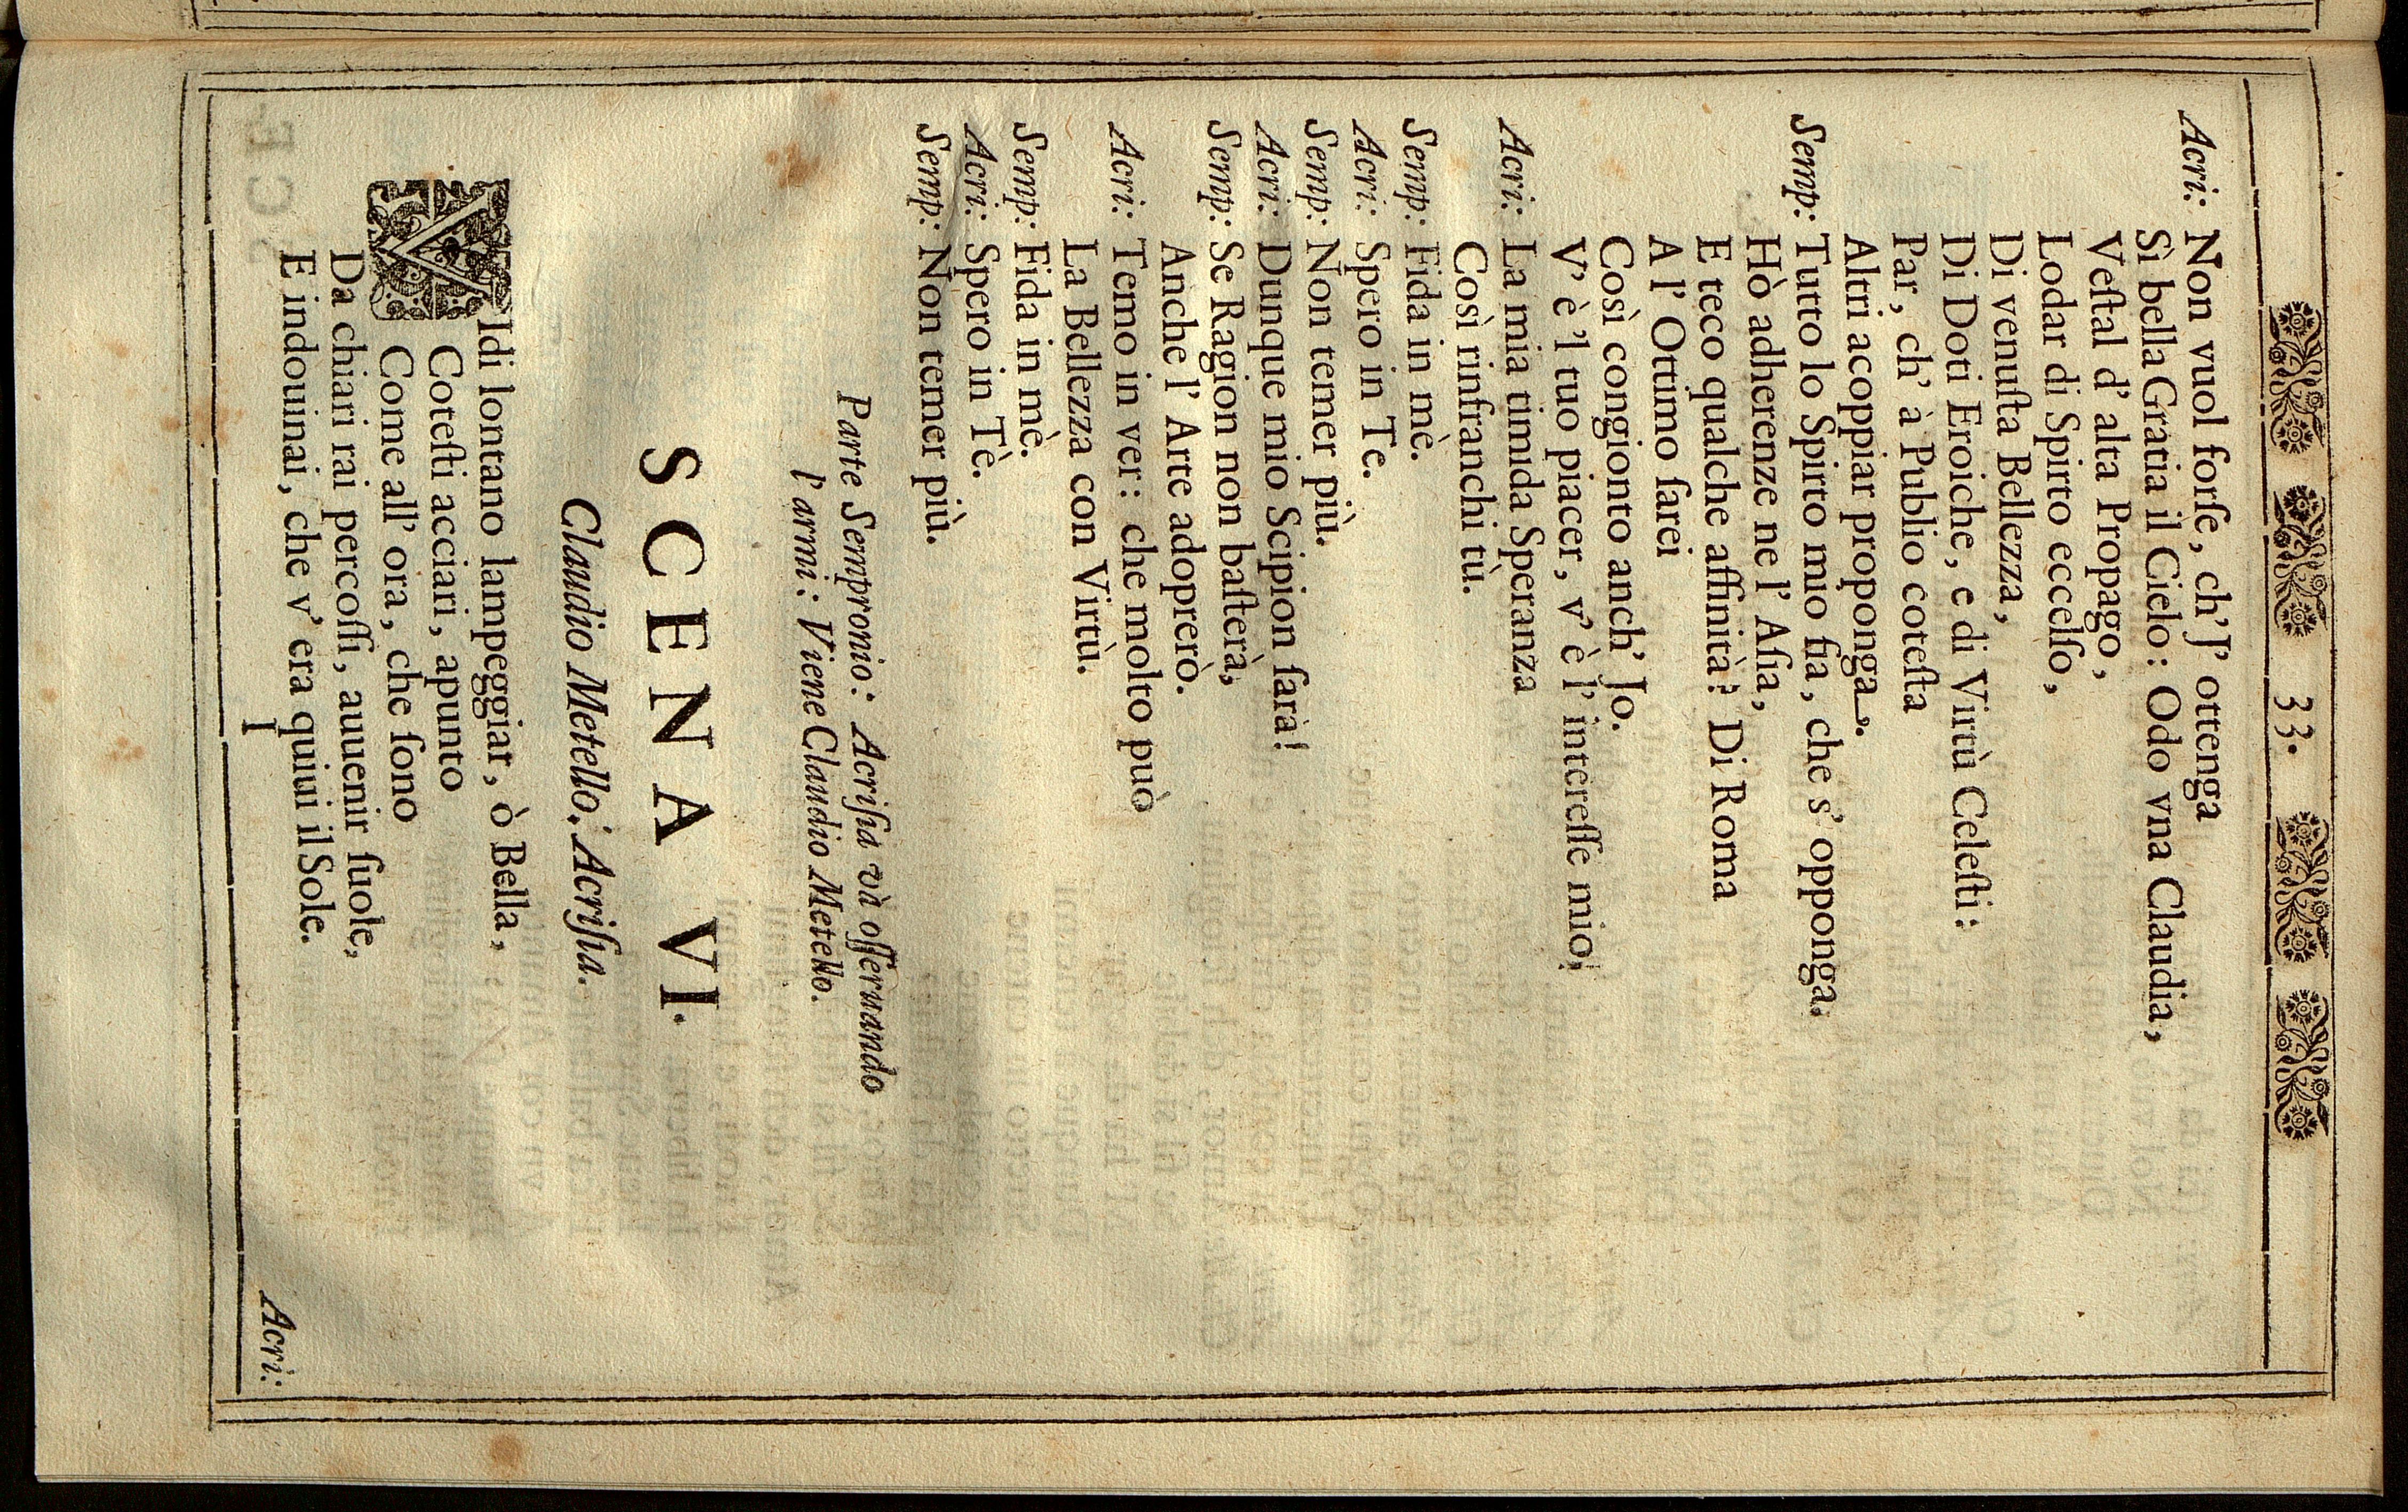 33.
Acri: Non vuol forſe, ch' J' ottenga
Sì bella Gratia il Cielo: Odo vna Claudia,
Veſtal d' alta Propago,
Lodar di Spirto eccelſo,
Di venuſta Bellezza,
Di Doti Eroiche, e di Virtù Celeſti:
Par, ch' à Publio coteſta
Altri acoppiar proponga.
Semp: Tutto lo Spirto mio fia, che s' opponga.
Hò adherenze ne l' Aſia,
E teco qualche affinità: Di Roma
A l' Ottimo ſarei
Così congionto anch' Jo.
V' è 'l tuo piacer, v' è l' intereſſe mio.
Acri: La mia timida Speranza
Così rinfranchi tù.
Semp: Fida in mè.
Acri: Spero in Te.
Semp: Non temer più.
Acri: Dunque mio Scipion ſarà!
Semp: Se Ragion non baſterà,
Anche l' Arte adoprerò.
Acri: Temo in ver: che molto può
La Bellezza con Virtù.
Semp: Fida in mè.
Acri: Spero in Tè.
Semp: Non temer più.
Parte Sempronio: Acriſia và oſſeruando
l' armi: Viene Claudio Metello.
SCENA VI.
Claudio Metello. Acriſia.
VIdi lontano lampeggiar, ò Bella,
Coteſti acciari, apunto
Come all' ora, che ſono
Da chiari rai percoſſi, auuenir ſuole,
E indouinai, che v' era quiui il Sole.
I
Acri: